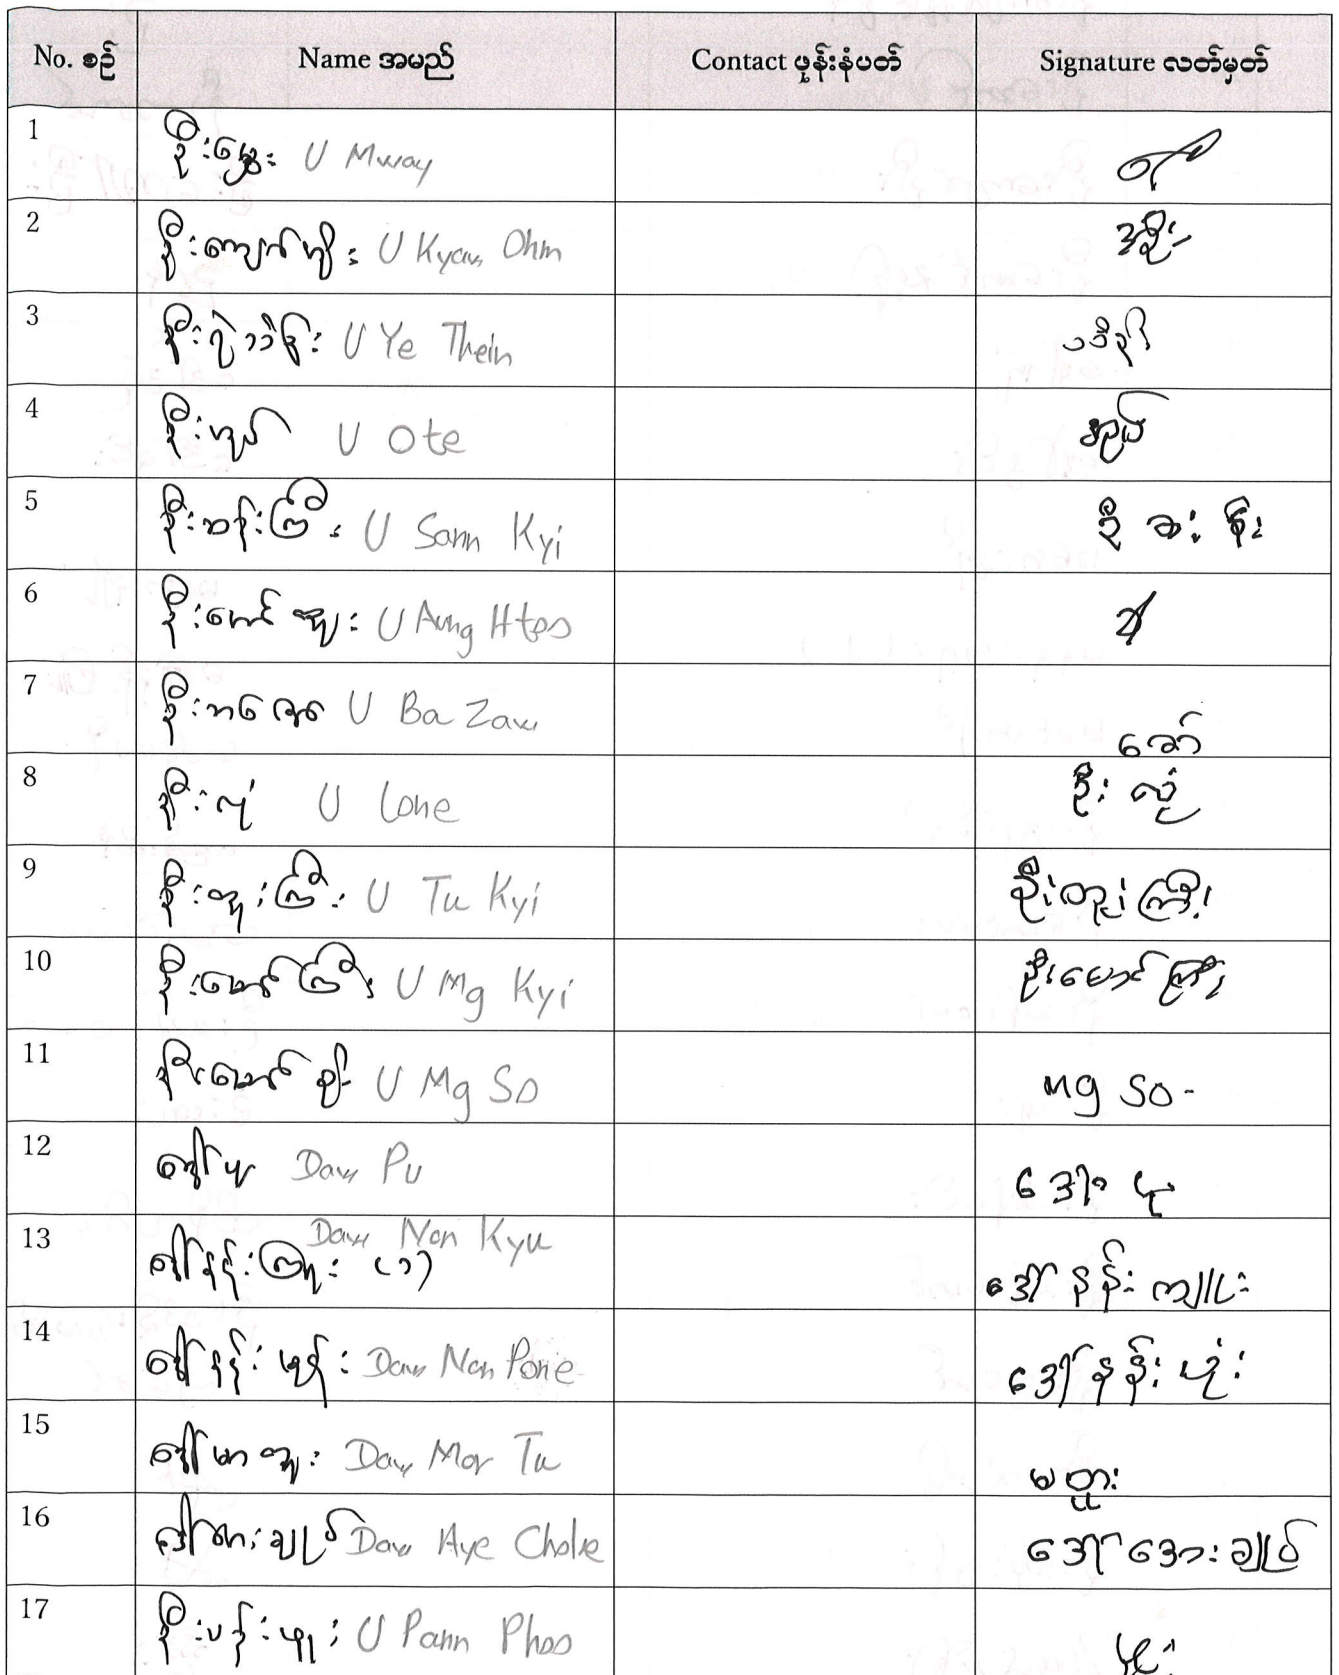 No. စဉ် Name အမည် Contact ဖုန်းနံပတ် Signature လတ်မှတ်
1 ဦးမွှေး U Mway
2 ဦးကျော်အုံး U Kyaw Ohm
3 ဦးရဲသိန်း U Ye Thein
4 ဦးအုတ် U Ote
5 ဦးဆန်းကြီး U Sann Kyi
6 ဦးအောင်ထူး U Aung Htoo
7 ဦးဘဇော် U Ba Zaw ဇော်
8 ဦးလုံ U Lone ဦးလုံ
9 ဦးတူးကြီး U Tu Kyi ဦးတူးကြီး
10 ဦးမောင်ကြီး U Mg Kyi ဦးမောင်ကြီး
11 ဦးမောင်စိုး U Mg So Mg So-
12 ဒေါ်ပု Daw Pu ဒေါ်ပု
Daw Nan Kyu
13 ဒေါ်နန်းကြူး (၁) ဒေါ်နန်းကျူး
14 ဒေါ်နန်း Daw Nan Pone ဒေါ်နန်းပုံး
15 ဒေါ်မာတူး Daw Mar Tu မတူး
16 ဒေါ်အေးချပ် Daw Aye ဒေါ်အေးချပ်
17 ဦးပန်းဖူး U Pann Phoo